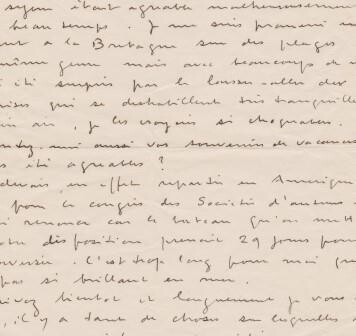 séjour était agréable malheureusement
beau temps. Je me suis promené
à la Bretagne sur des plages
même genre mais avec beaucoup de
été surpris par le laisser-aller des
qui se déshabillent très tranquille
air, je les croyais si choquables.
moi aussi vos souvenirs de vacances
été agréables ?
devais en effet repartir en Amérique
pour le congrès des Sociétés d'auteurs
renoncé car le bateau qu'on mett
disposition prenait 29 jours pour
. C'est trop long pour moi qui
pas si brillant en mer.
bientôt et longuement je vous
, il y a tant de choses sur lesquelles